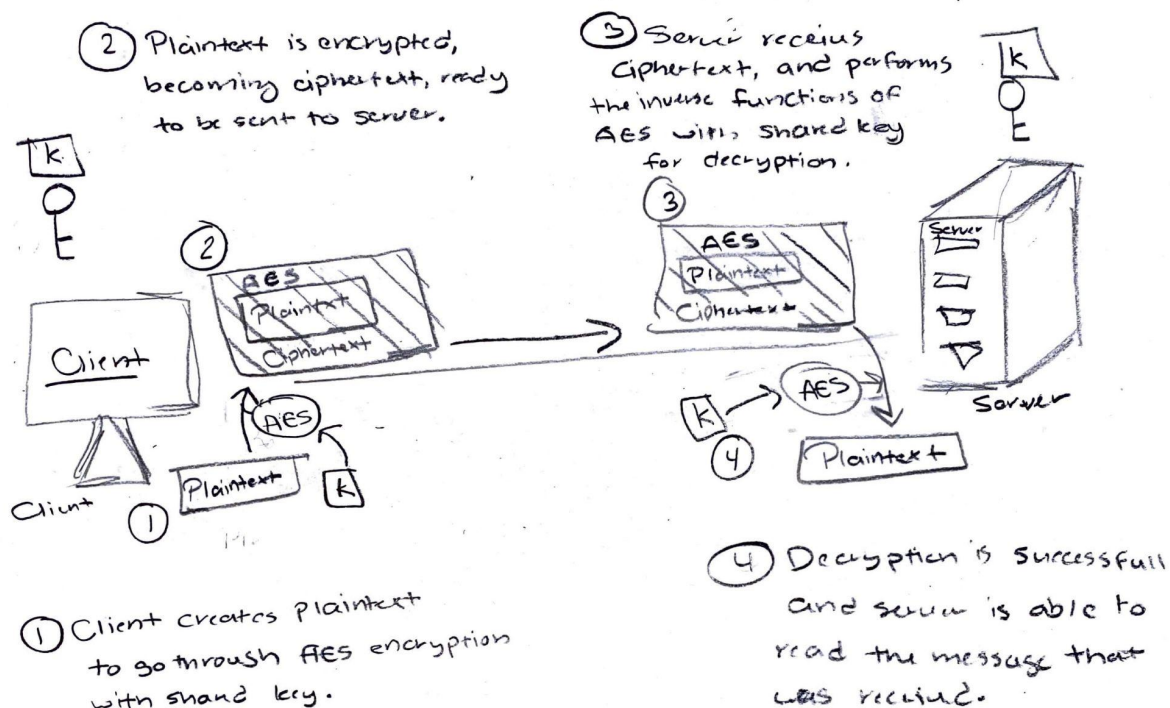 2 Plaintext is encrypted,
becoming ciphertext, ready
to be sent to server.
3 Server receives
Ciphertext, and performs
the inverse functions of
AES with shared key
for decryption.
K
K
2
AES
Plaintext
Ciphertext
3
AES
Plaintext
Ciphertext
Server
Client
AES
Plaintext
K
Client
1
K
AES
4
Plaintext
Server
1 Client creates Plaintext
to go through AES encryption
with shared key.
4 Decryption is successfull
and server is able to
read the message that
was received.